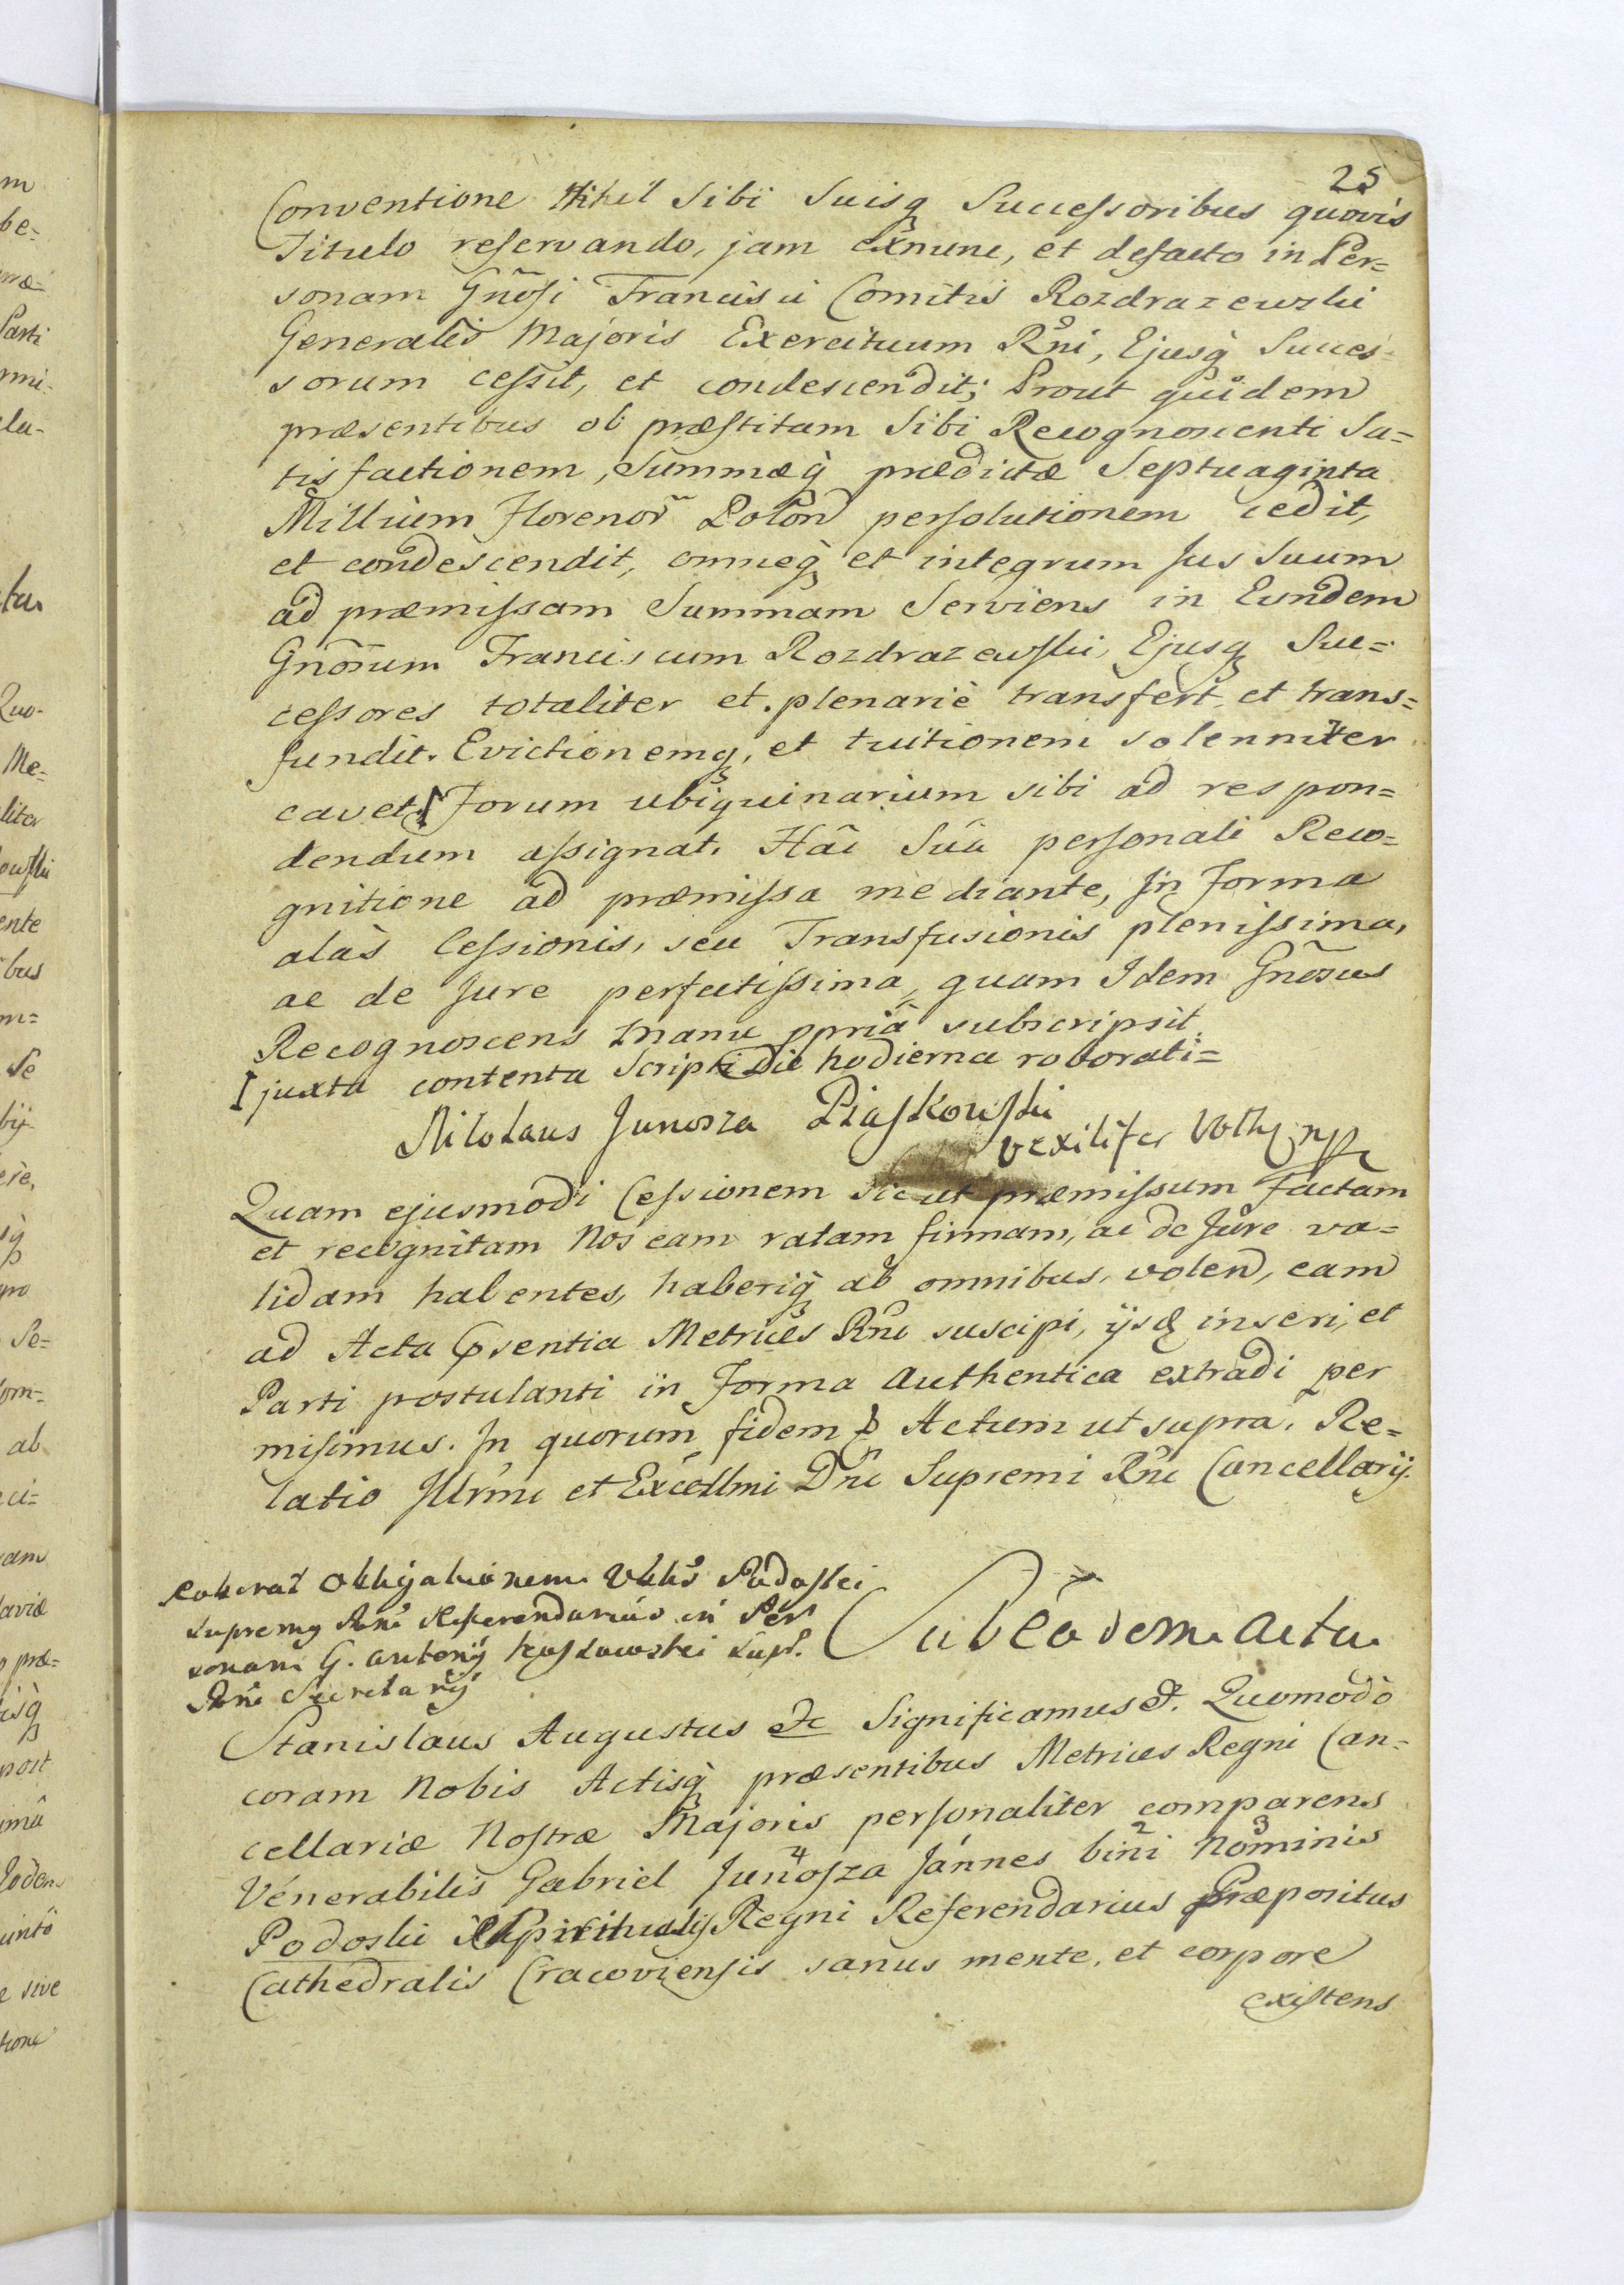 25
Conventione Nihil Sibi Suisq Successoribus quovis
Titulo reservando, jam exnunc, et defacto in Per=
sonam Gnosi Francisci Comitis Rozdrazewski
Generalis Majoris Exercituum Rni, Ejusq Succes=
sorum cessit, et condescendit; Prout quidem
præsentibus ob præstitam Sibi Recognoscenti Sa=
tisfactionem, Summæq prædictæ Septuaginta
Millium Florenor Polon persolutionem cedit,
et condescendit, omneq et integrum Jus Suum
ad præmissam Summam Serviens in Eundem
Gnosum Franciscum Rozdrazewski, Ejusq Suc=
cessores totaliter et plenarie transfert et trans=
fundit. Evictionemq, et tuitionem solenniter
cavet, Forum ubiquinarium sibi ad respon=
dendum assignat. Hâc Suâ personali Reco=
gnitione ad præmissa mediante, in Forma
alàs Cessionis, seu Transfusionis plenissima,
ac de Jure perfectissima, quam Idem Gnosus
Recognoscens manu ppriâ subscripsit.
I juxta contenta Scripti Die hodierna roborati=
Nikolaus Junosza Piaskowski
Vexilifer Volhy mp
Quam ejusmodi Cessionem sicut præmissum Factam
et recognitam Nos eam ratam firmam, ac de Jure va=
lidam habentes, haberiq ab omnibus, volen, eam
ad Acta Psentia Metrices Rni suscipi, ijsq inseri, et
Parti postulanti in Forma Authentica extradi per
misimus. In quorum fidem Actum ut supra. Re=
latio Illrmi et Excellmi Dni Supremi Rni Cancellarij.
Roborat Obligationem Vblis Podoski
Supremy Rni Referendarius in Per
sonam G. Antonij Kossowski Supr.
Rni Secretarij
Sub eodem Actu
Stanislaus Augustus etc Significamus et. Quomodò
coram Nobis Actisq præsentibus Metrices Regni Can=
cellariæ Nostræ Majoris personaliter comparens
Venerabilis Gabriel 4 Junosza Jánnes 2 bini 3 Nominis
Podoski Spiritualis Regni Referendarius Præpositus
Cathedralis Cracoviensis sanus mente, et corpore
existens